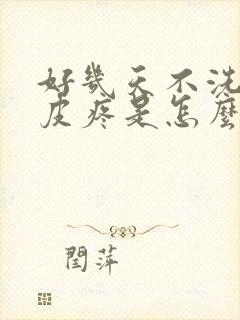 好几天不洗
皮疼是怎麼
閆萍